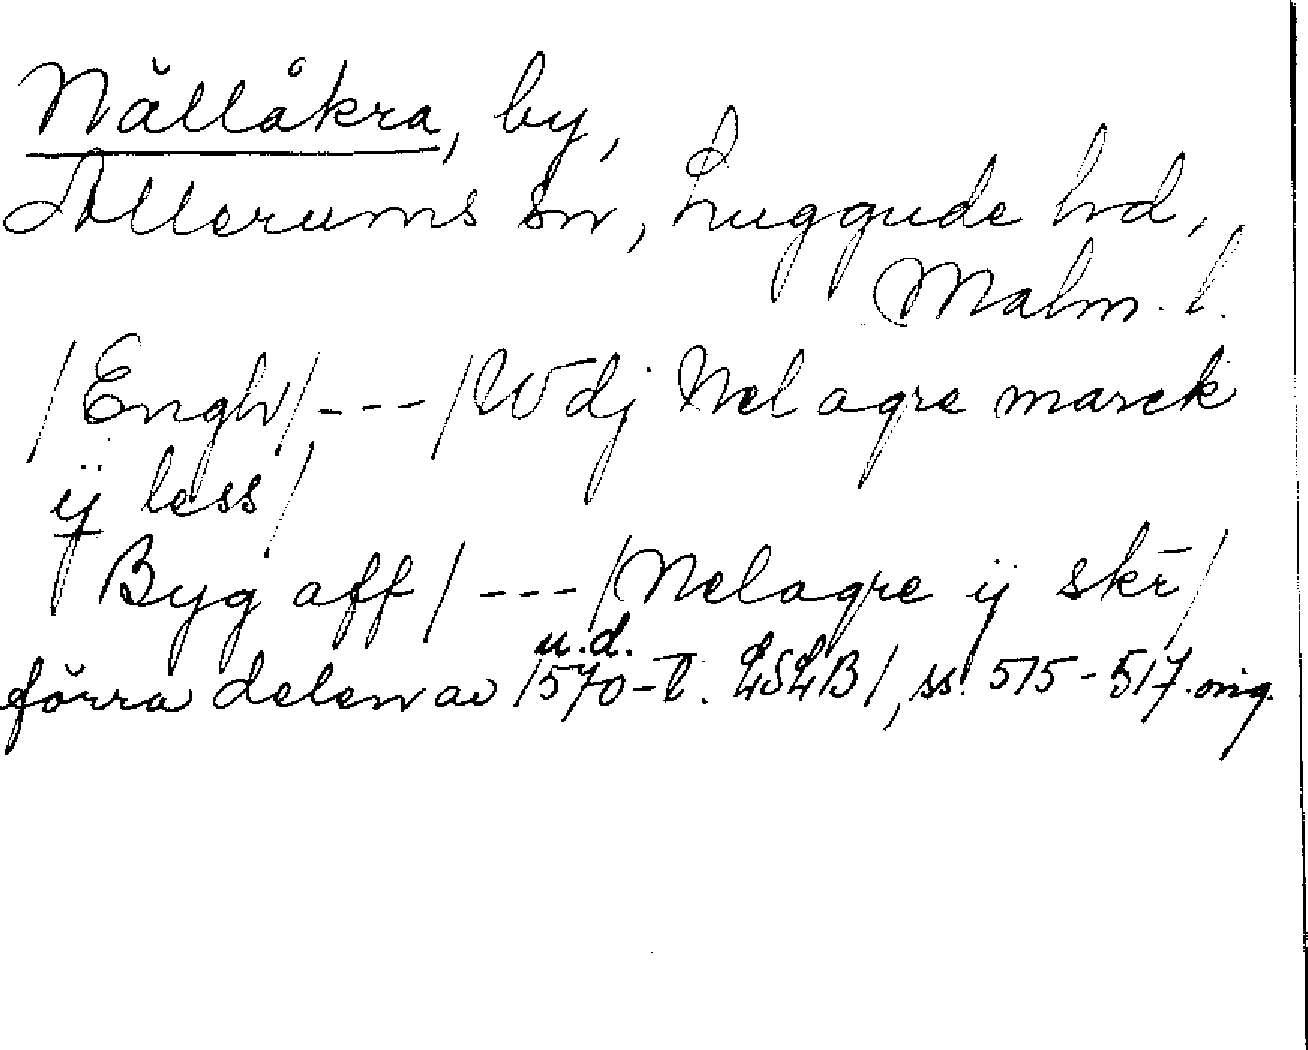 Nällåkra, by,
Allerums sn, Luggude hd,
Malm. l.
/Engh/ --- /Wdj Nelagre marck
ij less/
Byg aff/ --- /Nelagre ij skr̄/
u.d.
förra delen av 1570-t. LSLB/, ss. 515-517. orig.